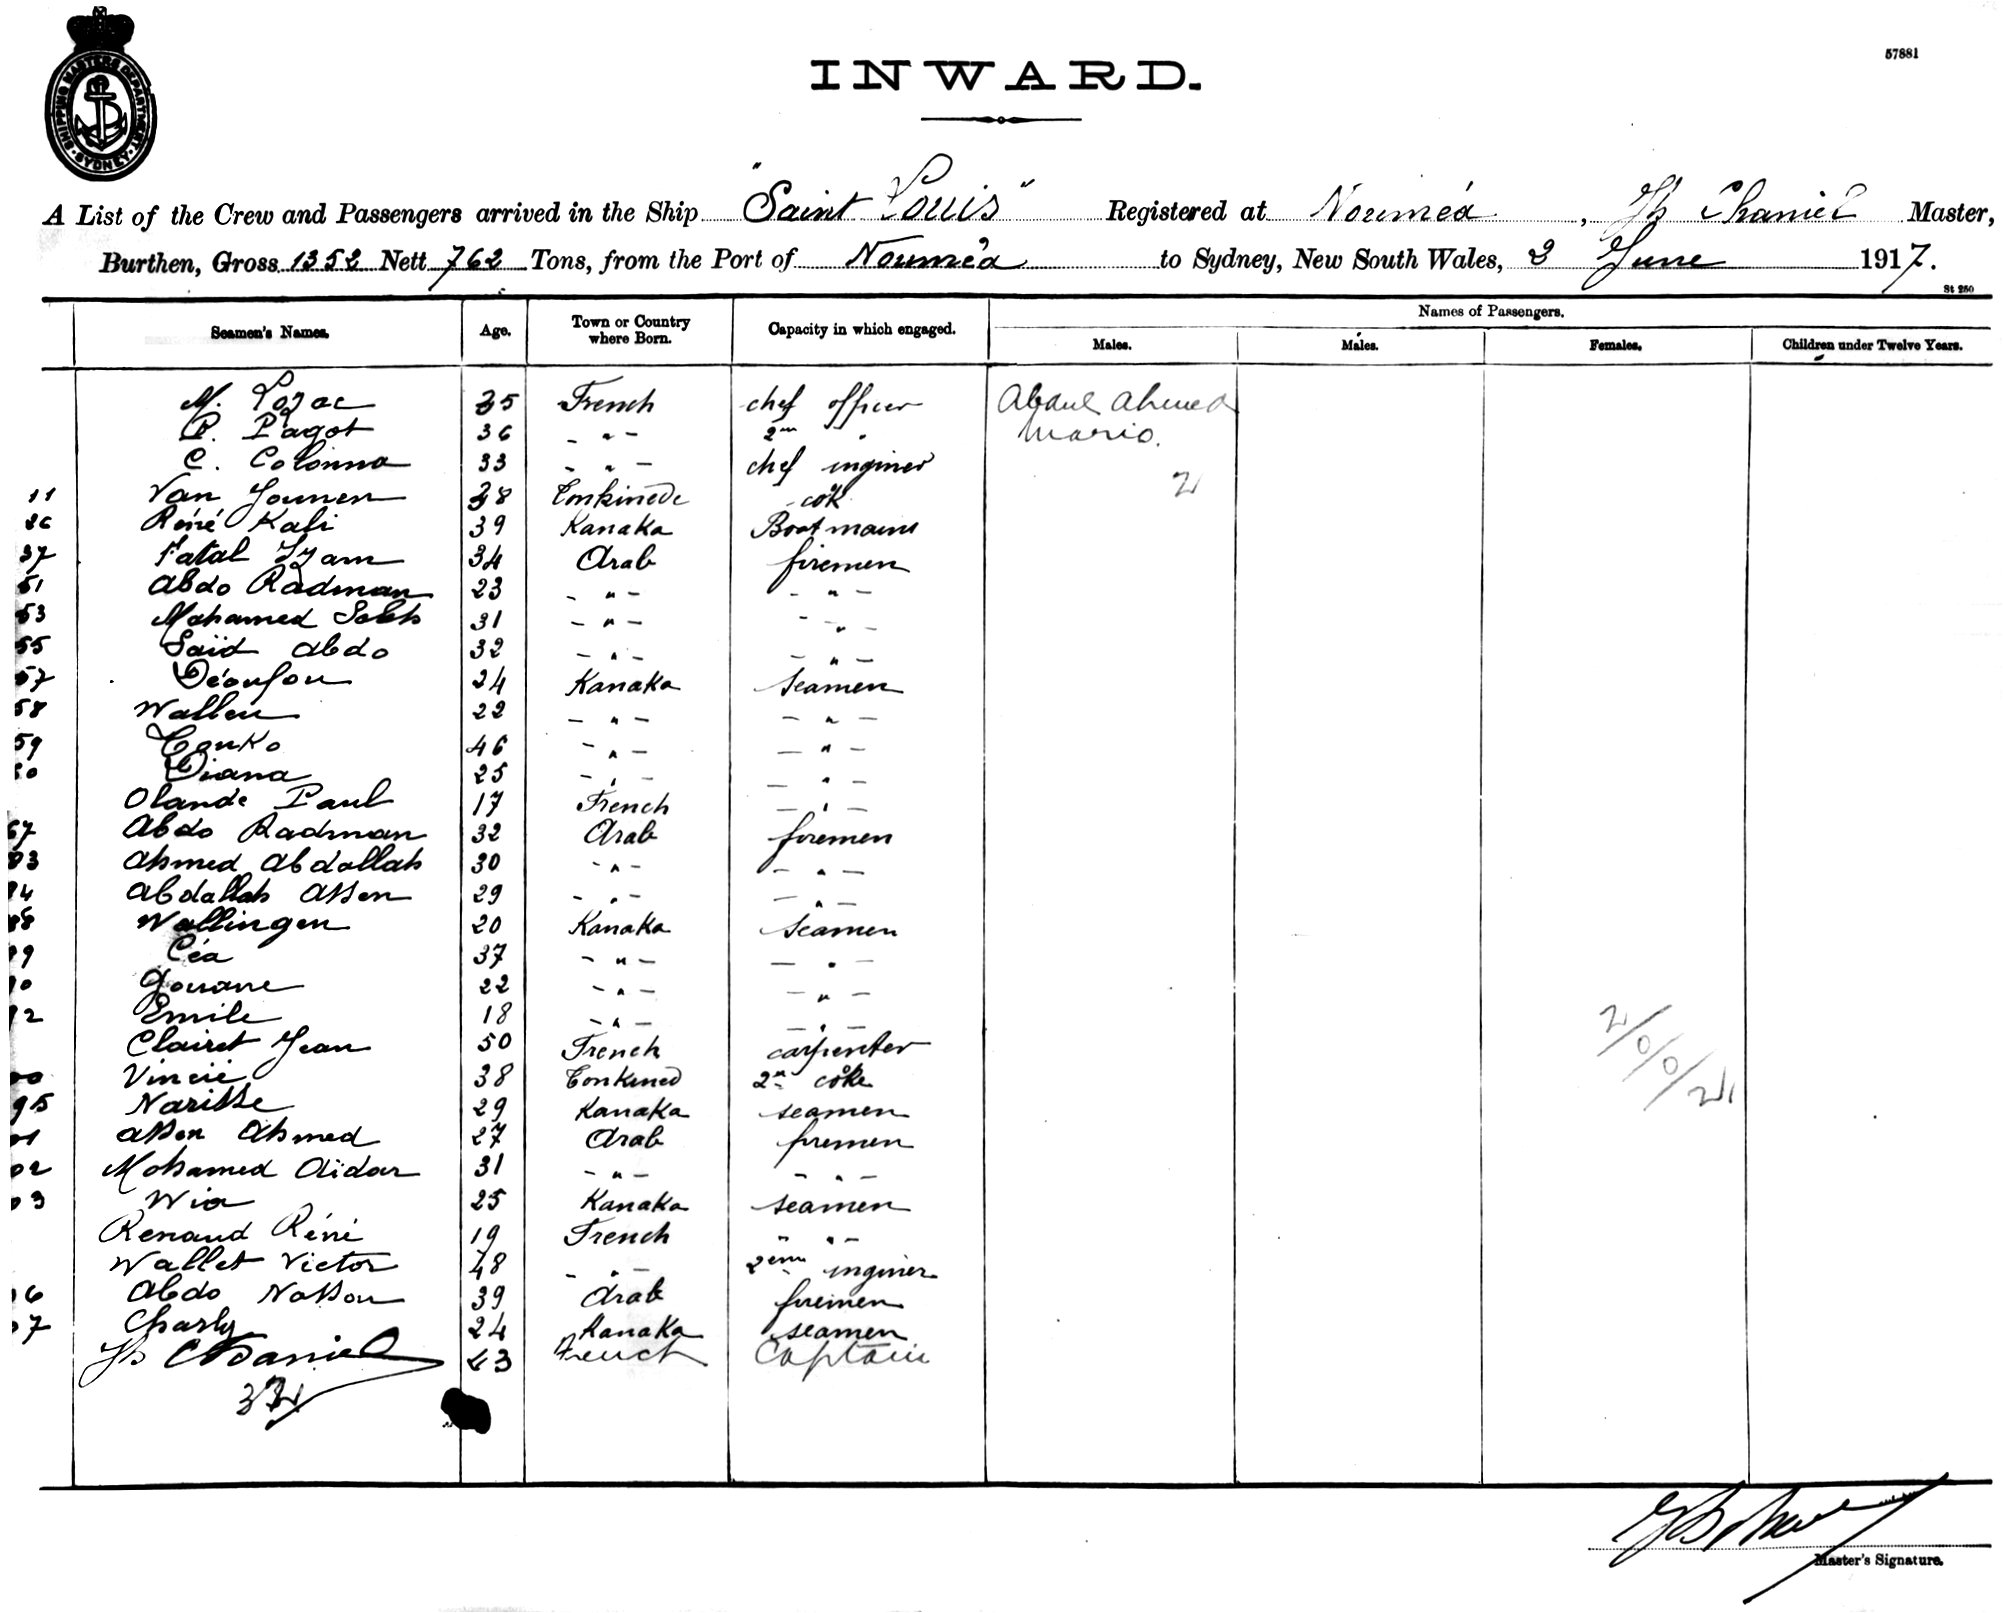 SHIPPING MASTERS DEPARTMENT. SYDNEY
57881
INWARD.
A List of the Crew and Passengers arrived in the Ship "Saint Louis" Registered at Nouméa, Master,
Burthen, Gross 1352 Nett 762 Tons, from the Port of Nouméa to Sydney, New South Wales, 2 June 1917.
St 250
Names of Passengers.
Seamen's Names. Age. Town or Country where Born. Capacity in which engaged. Males. Males. Females. Children under Twelve Years.
M. Lozac 35 French chef officer Abdul Ahmed
P. Pagot 36 - " - 2me " Mario.
C. Colonna 33 - " - chef inginer
11 Van 38 cok 2
26 Réné Kali 39 Kanaka
37 Fatal 34 Arab firemen
51 Abdo Radman 23 - " - - " -
53 Mohamed Saleh 31 - " - - " -
55 Saïd Abdo 32 - " - - " -
57 24 Kanaka seamen
58 Wallen 22 - " - - " -
59 Couko 46 - " - - " -
60 Diana 25 - " - - " -
Olande Paul 17 French - " -
67 Abdo Radman 32 Arab firemen
83 Ahmed Abdallah 30 - " - - " -
84 Abdallah Assen 29 - " - - " -
Wallingen 20 Kanaka seamen
89 Céa 37 - " - - " -
Gouane 22 - " - - " -
92 Emile 18 - " - - " -
Clairet Jean 50 French carpenter 2/0/0/2
00 38 2me coke
95 Narisse 29 Kanaka seamen
01 Assen Ahmed 27 Arab firemen
02 Mohamed Aïdar 31 - " - - " -
03 Wia 25 Kanaka seamen
Renaud Réné 19 French - " -
Wallet Victor 48 - " - 2eme inginer
06 Abdo 39 Arab firemen
07 Charly 24 Kanaka seamen
43 French Captain
32
Master's Signature.